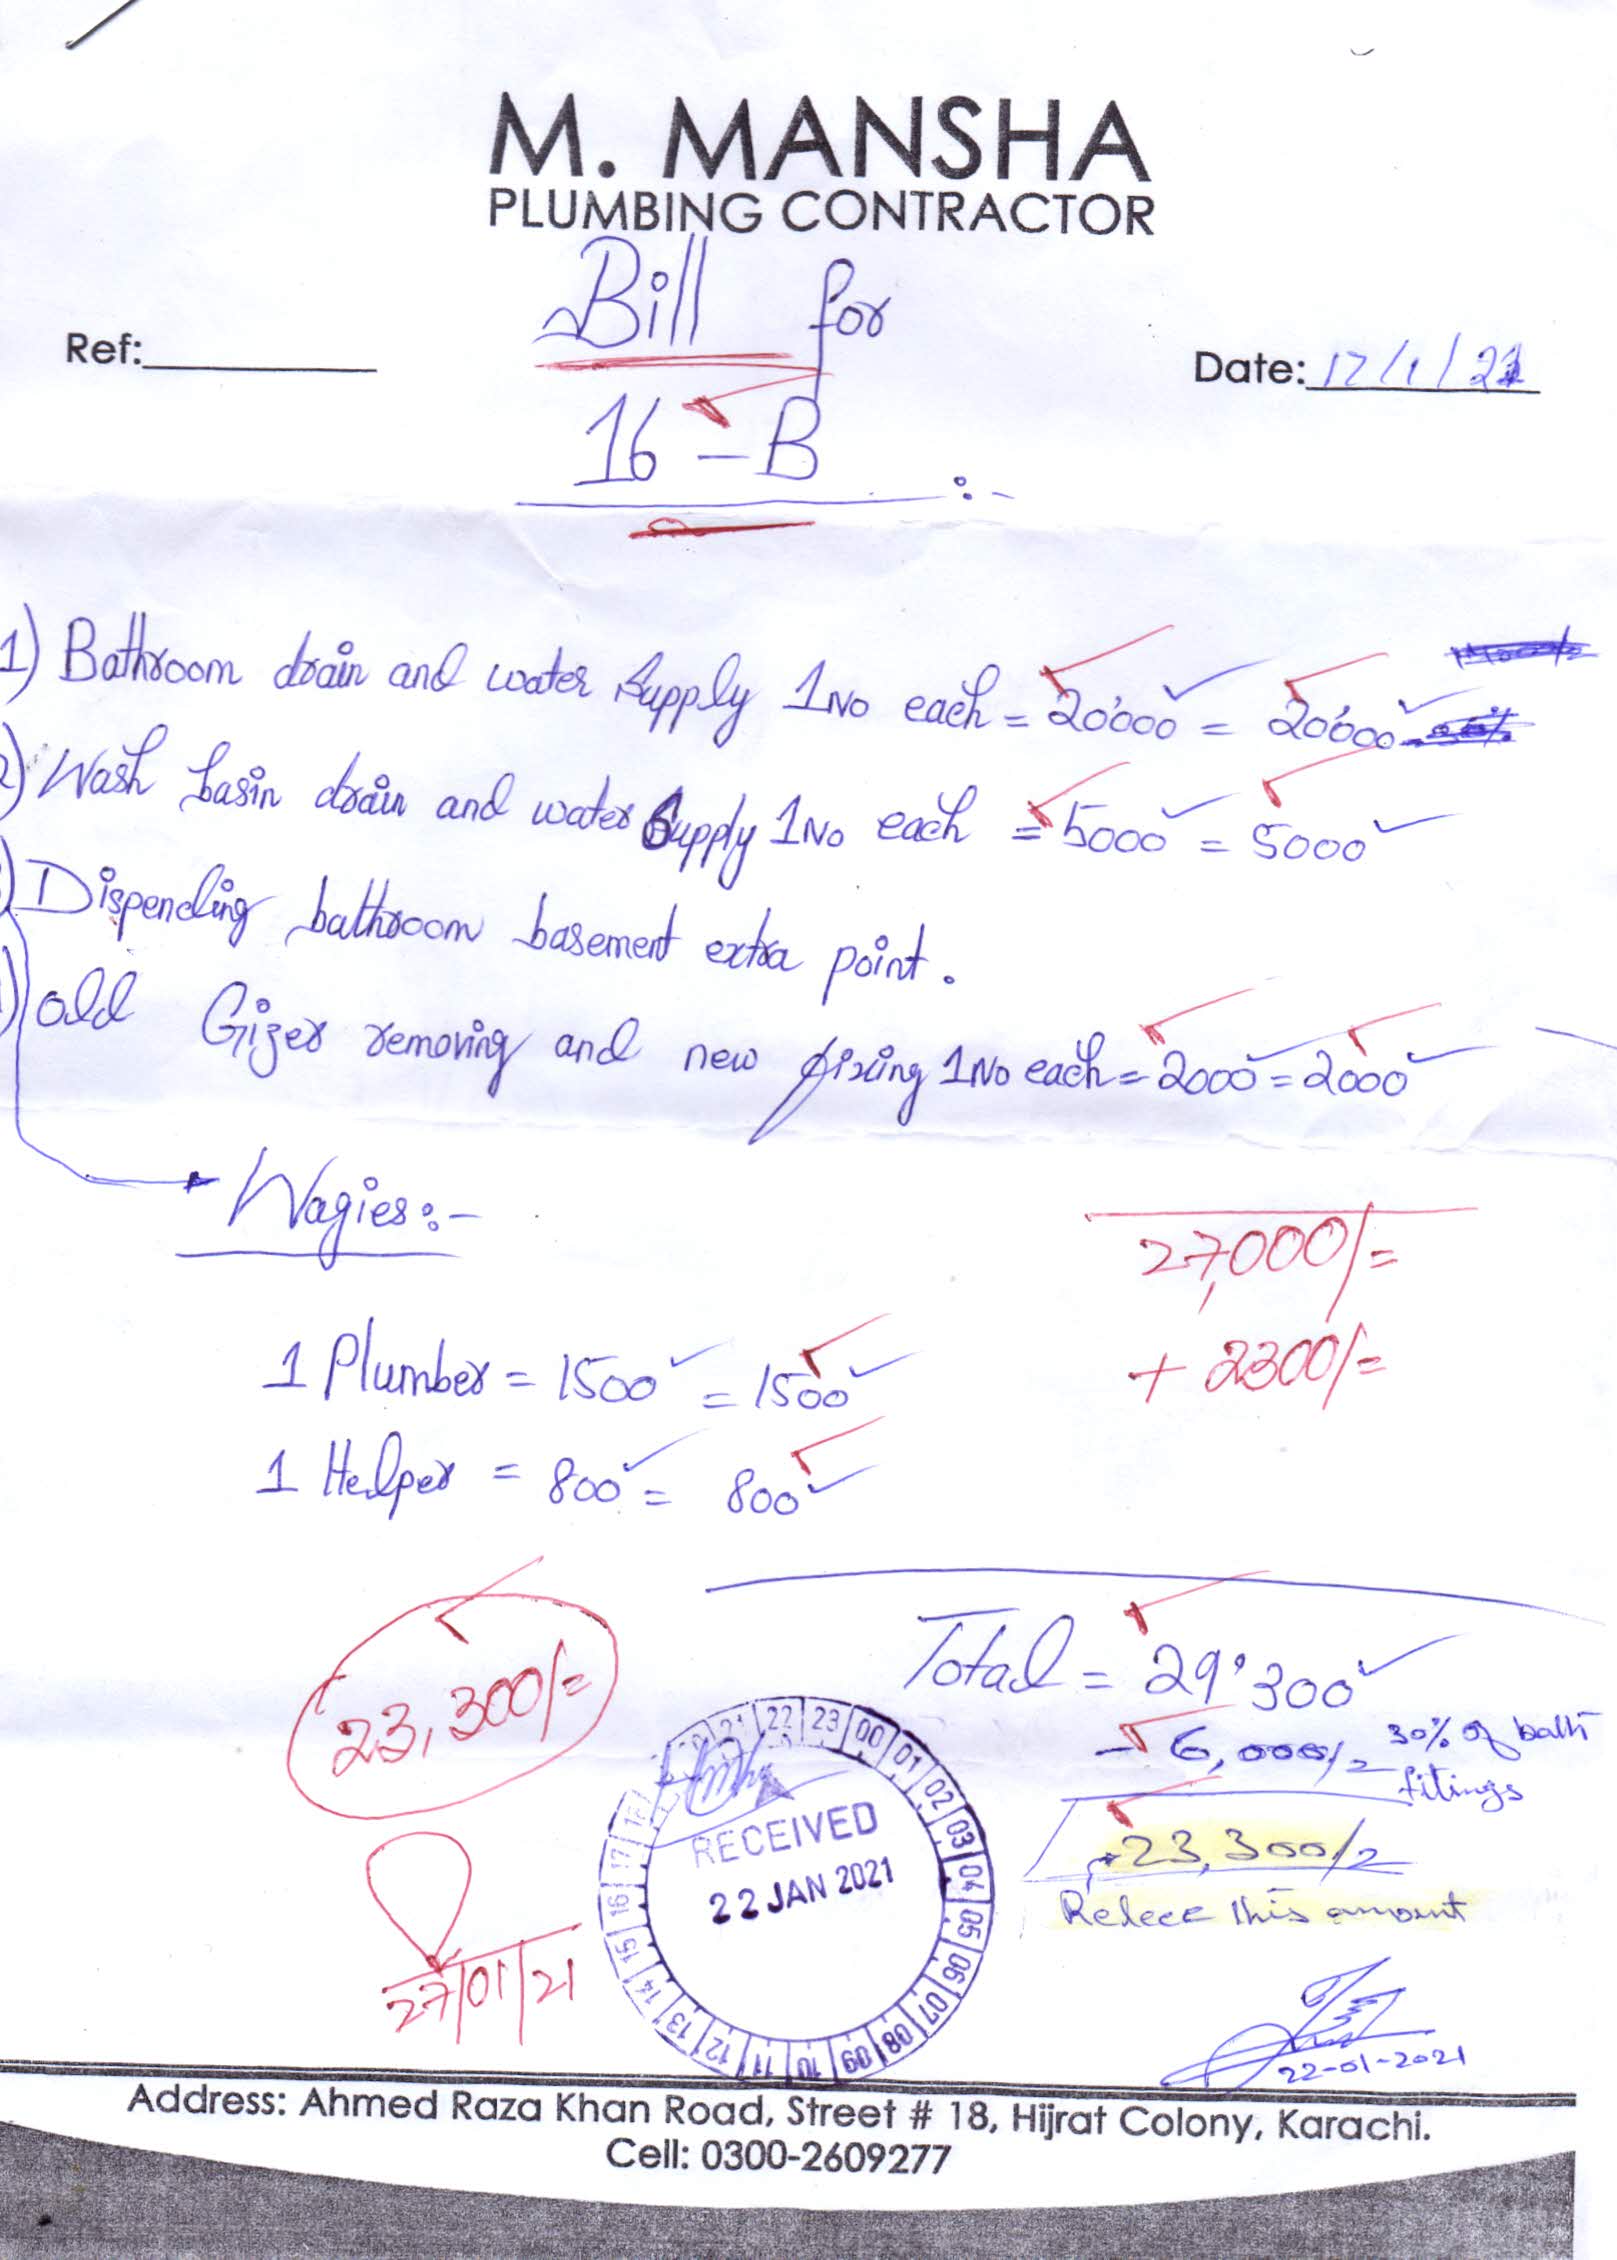 M. MANSHA
PLUMBING CONTRACTOR
Bill for
Ref:
Date: 17/1/21
16 - B :-
1) Bathroom drain and water Supply 1No each = 20'000 = 20'000
2) Wash basin drain and water Supply 1No each = 5000 = 5000
) Dispending bathroom basement extra point.
) old Gizer removing and new fixing 1No each = 2000 = 2000
Wagies:-
27,000/=
+ 2300/=
1 Plumber = 1500 = 1500
1 Helper = 800 = 800
Total = 29'300
23,300/=
- 6,000/= 30% of bath fitings
23,300/=
Relece this amount
RECEIVED
22 JAN 2021
21 22 23 00 01 02 03 04 05 06 07 08 09 10 11 12 13 14 15 16 17 18
27/01/21
22-01-2021
Address: Ahmed Raza Khan Road, Street # 18, Hijrat Colony, Karachi.
Cell: 0300-2609277